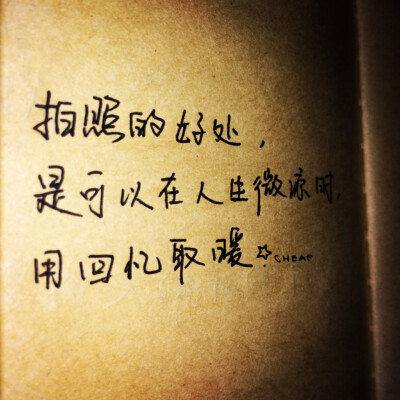 拍照的好处，
是可以在人生微凉时，
用回忆取暖☆CHEAP